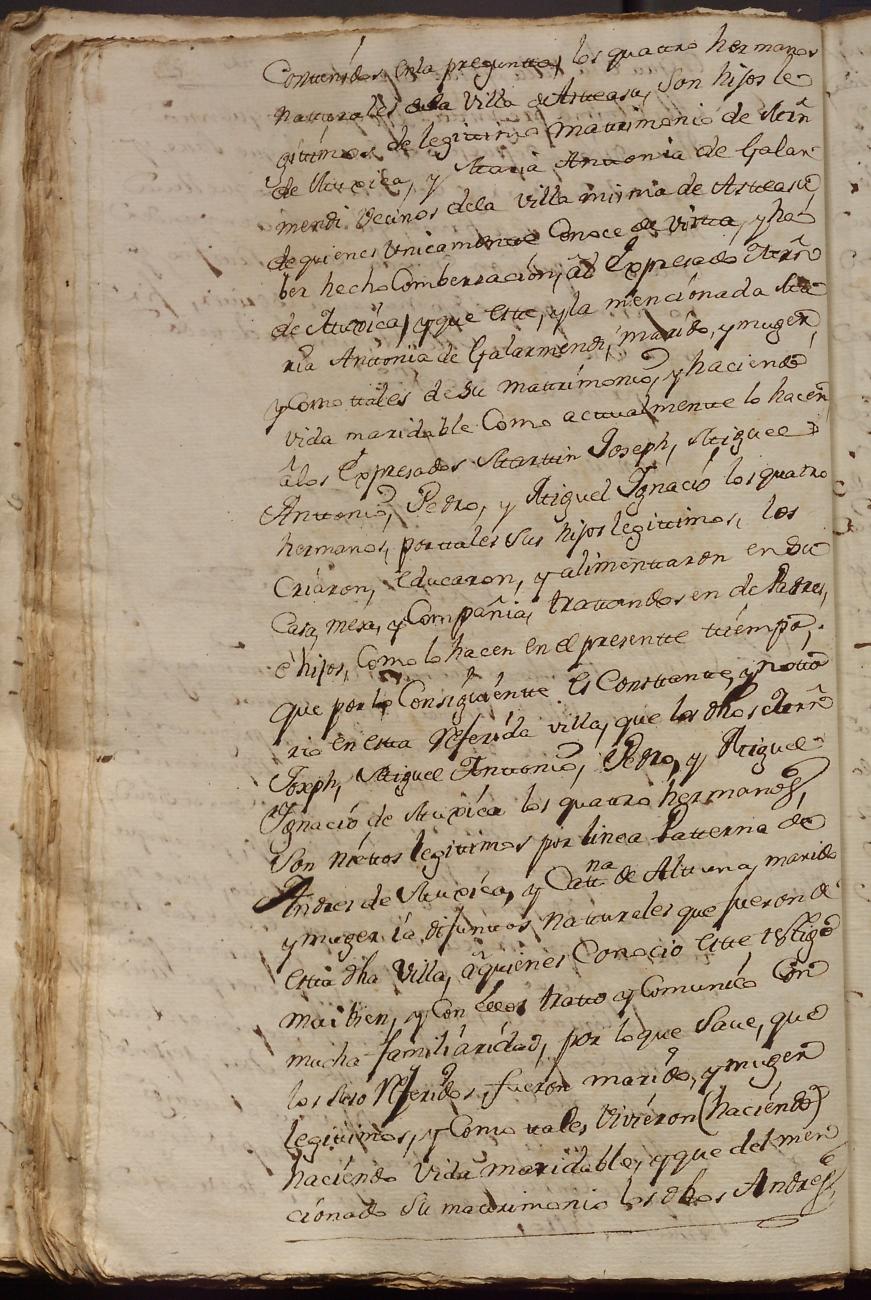 Contenidos en la pregunta, los quattro hermanos
naturales de la Villa de Asteasu, son hijos le
gitimos de legittimo matrimonio de Martin
de Muxica, y Maria Anttonia de Galar
mendi vecinos de la Villa misma de Asteasu,
de quienes Unicamente Conoce de Vista, y ha
ber hecho Combersación, al Expresado Martin
de Muxica, y que este, y la mencionada Ma
ria Antonia de Galarmendi, marido, y muger
y Como tales de su matrimonio, y haciendo
vida maridable Como actualmente lo hacen,
a los Expresados Martin Joseph, Miguel
Anttonio, Pedro, y Miguel Ignació los quatro
hermanos, por tales sus hijos legittimos, los
Criaron, educaron, y alimenttaron en su
Casa, mesa, y Compañia, trattandosen de Padres,
é hijos, Como lo hacen en el presente tiempo,
que por lo Consiguiente es Constante, y notto
rio en esta Referida villa, que los dhos Martin
Joseph, Miguel Anttonio, Pedro, y Miguel
Ignació de Muxica los quattro hermanos,
Son niettos legitimos por linea Patterna de
Andres de Muxica, y Catt.na de Altuna, marido
y muger ia difuntos naturales que fueron de
esta dha Villa, a quienes Conocio este testigo
mui bien, y con ellos tratto y Comunicó Con
mucha familiaridad, por lo que save, que
los suso Referidos, fueron marido, y muger
legitimos, y Como tales, Viviéron (haciéndo)
haciéndo Vida maridable, y que del men
cionado su matrimonio los dhos Andres